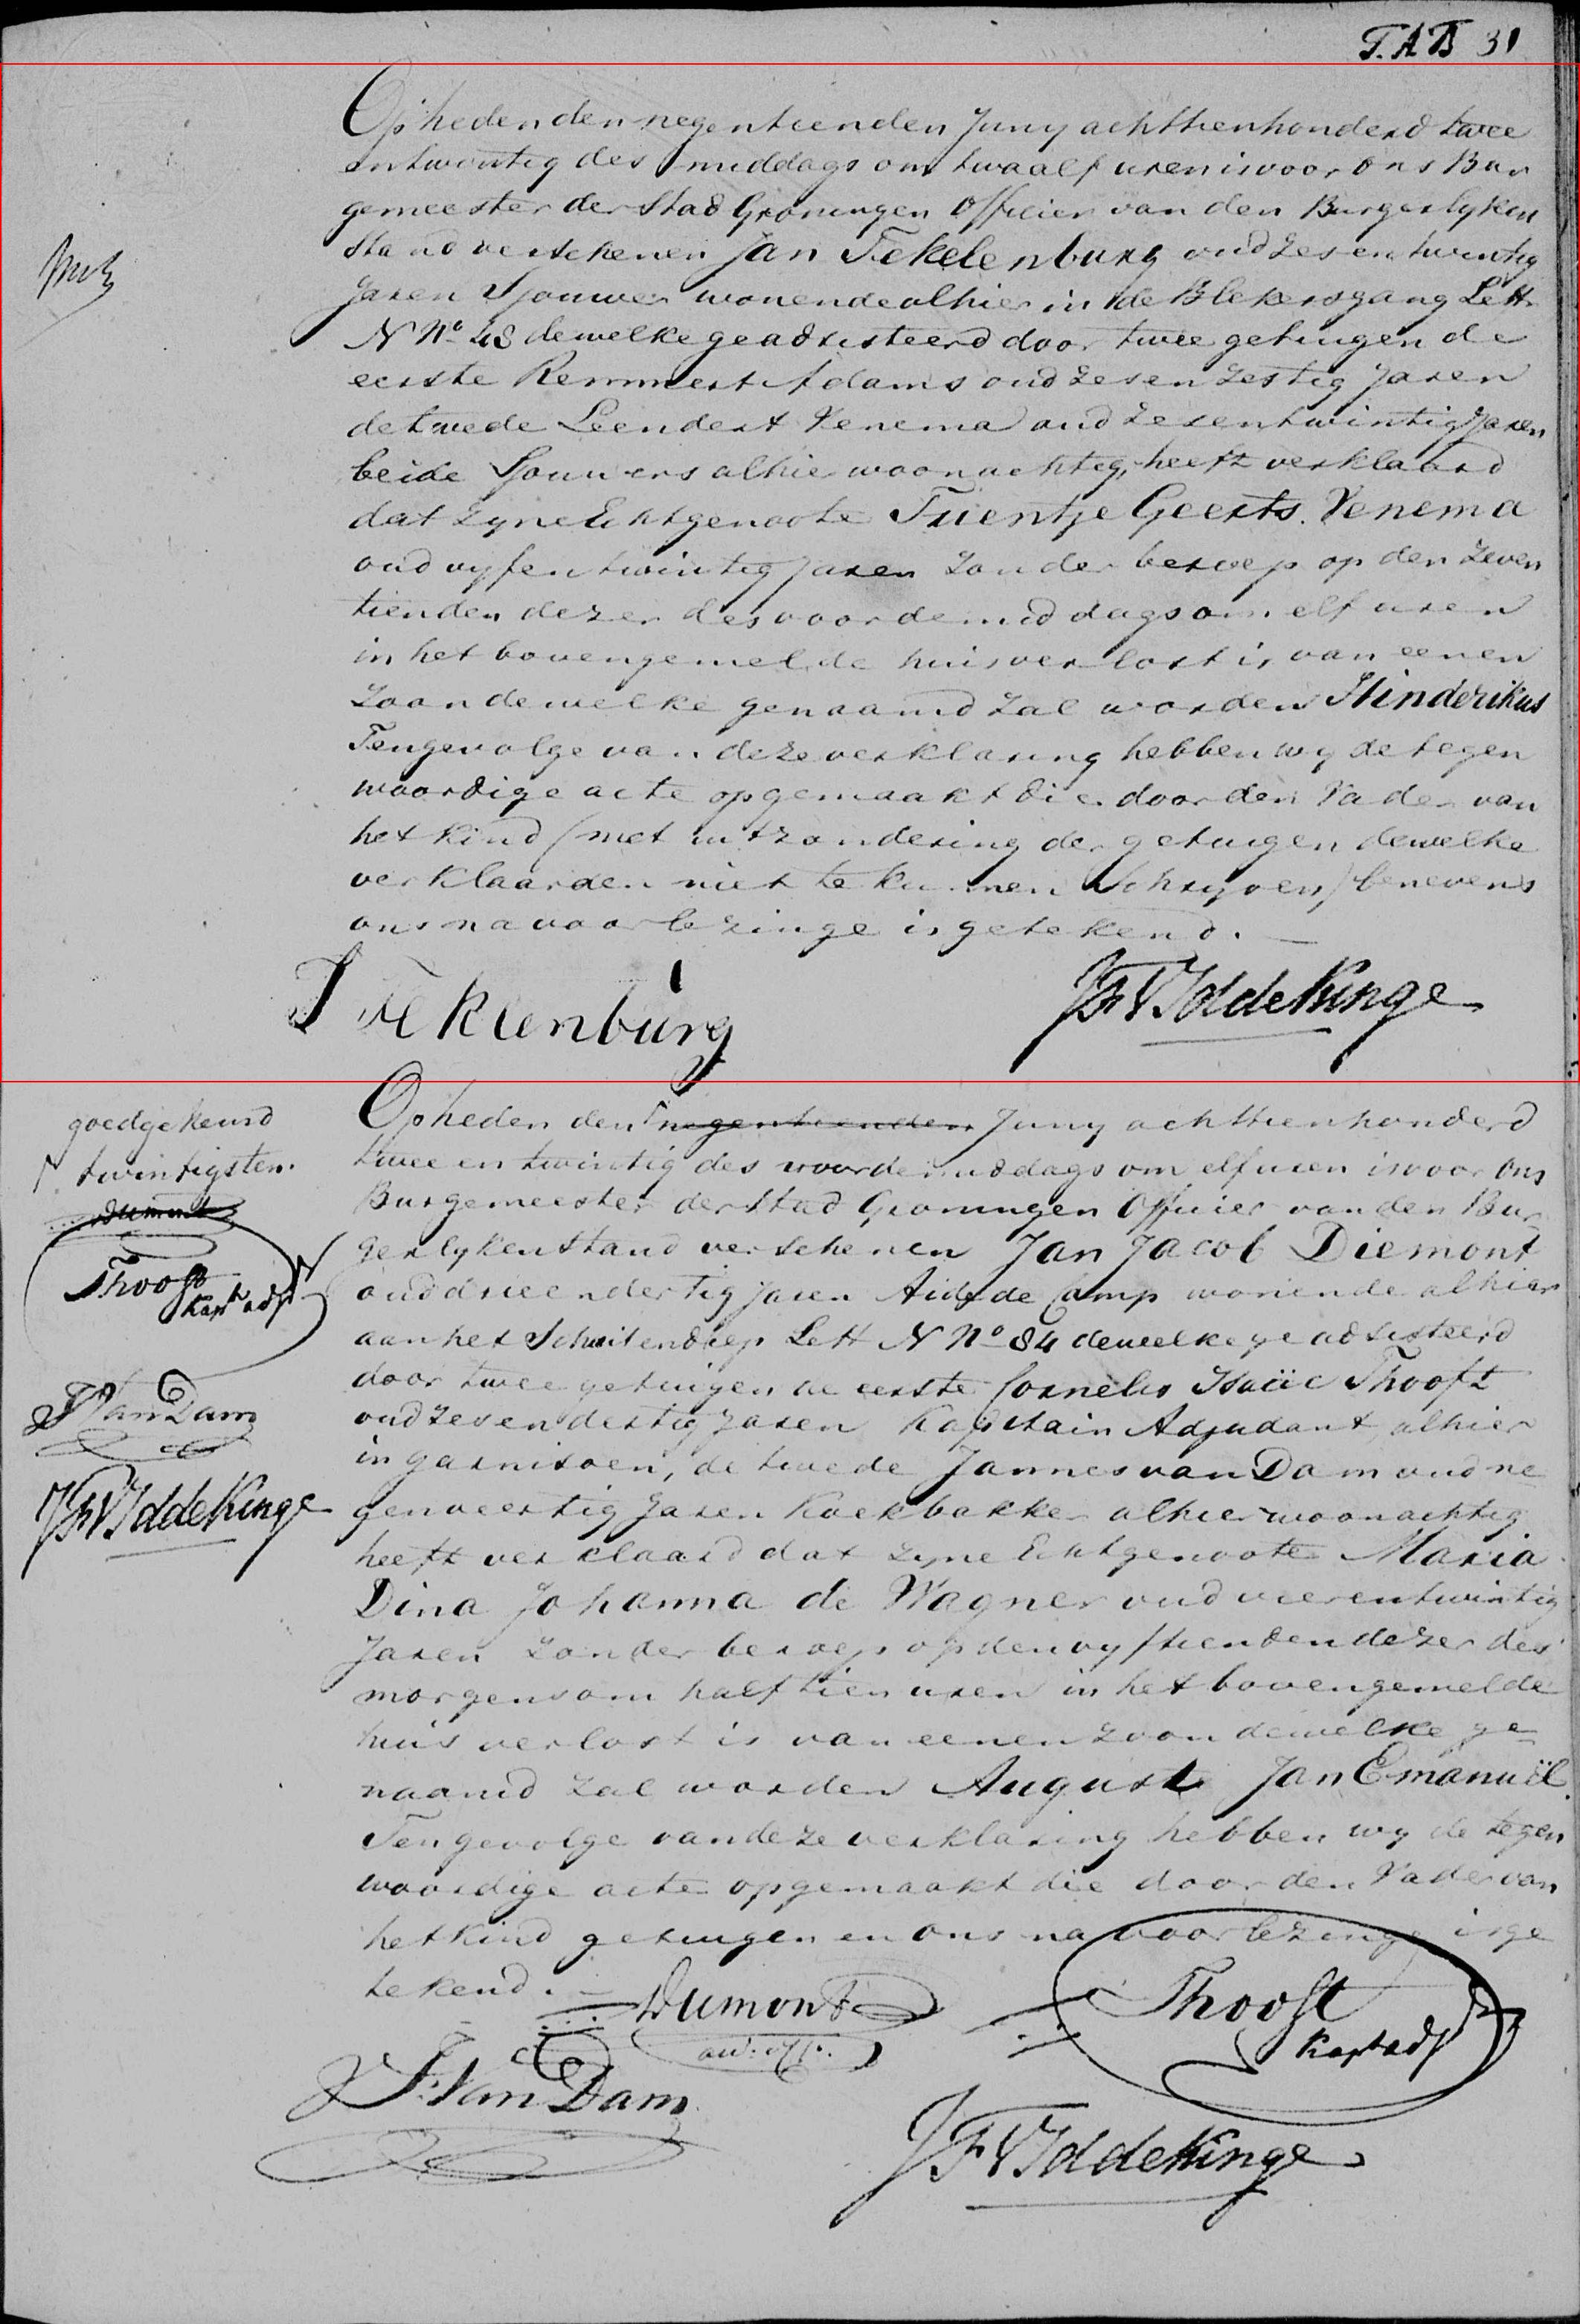 T.A.B 31
Op heden den negentienden Juny achttienhonderd twee
entwintig des middags om twaalf uren is voor ons Bur
gemeester der Stad Groningen Officier van den Burgerlyken
Stand verschenen Jan Tekelenburg oud zesentwintig
Jaren Sjouwer wonende alhier in de Blekersgang Lett
N No 48 dewelke geadsisteerd door twee getuigen de
eerste Remmert Adams oud zesenzestig Jaren
de twede Leendert Venema oud zesentwintig Jaren
beide Sjouwers alhier woonachtig, heeft verklaard
dat zyne Echtgenoote Trientje Geerts Venema
oud vyfentwintig Jaren zonder beroep op den zeven
tienden dezer des voordemiddags om elf uren
in het bovengemelde huis verlost is van eenen
zoon dewelke genaamd zal worden Hinderikus
Tengevolge van deze verklaring hebben wy de tegen
woordige acte opgemaakt die door den Vader van
het kind (met uitzondering der getuigen dewelke
verklaarden niet te kunnen Schryven) benevens
ons na voorlezinge is getekend.
J Teklenburg
JFVIddeKinge
goedgekeurd
twintigsten.
Dumont
Thooft
Kapt adjt
J Van Dam
JFVIddeKinge
Op heden den negentienden Juny achttienhonderd
twee en twintig des voordemiddags om elf uren is voor ons
Burgemeester der Stad Groningen Officier van den Bur
gerlyken Stand verschenen Jan Jacob Diemont
oud drieendertig Jaren Aide de Camp wonende alhier
aan het Schuitendiep Lett N No 84 dewelke geadsisteerd
door twee getuigen de eerste Cornelis Isaäc Thooft
oud zesendertig Jaren Kapitain Adjudant, alhier
in garnisoen, de twede Jannes van Dam oud ne
genveertig Jaren Koekbakker alhier woonachtig
heeft verklaard dat zyne Echtgenoote Maria
Dina Johanna de Wagner oud vierentwintig
Jaren zonder beroep op den vyftienden dezer des
morgens om half tien uren in het bovengemelde
huis verlost is van eenen zoon dewelke ge
naamd zal worden August Jan Emanuël.
Tengevolge van deze verklaring hebben wy de tegen
woordige acte opgemaakt die door den Vader van
het kind getuigen en ons na voorlezinge is ge
tekend.
Dumont
Thooft
Kapt adjt
J. Van Dam
JFVIddeKinge